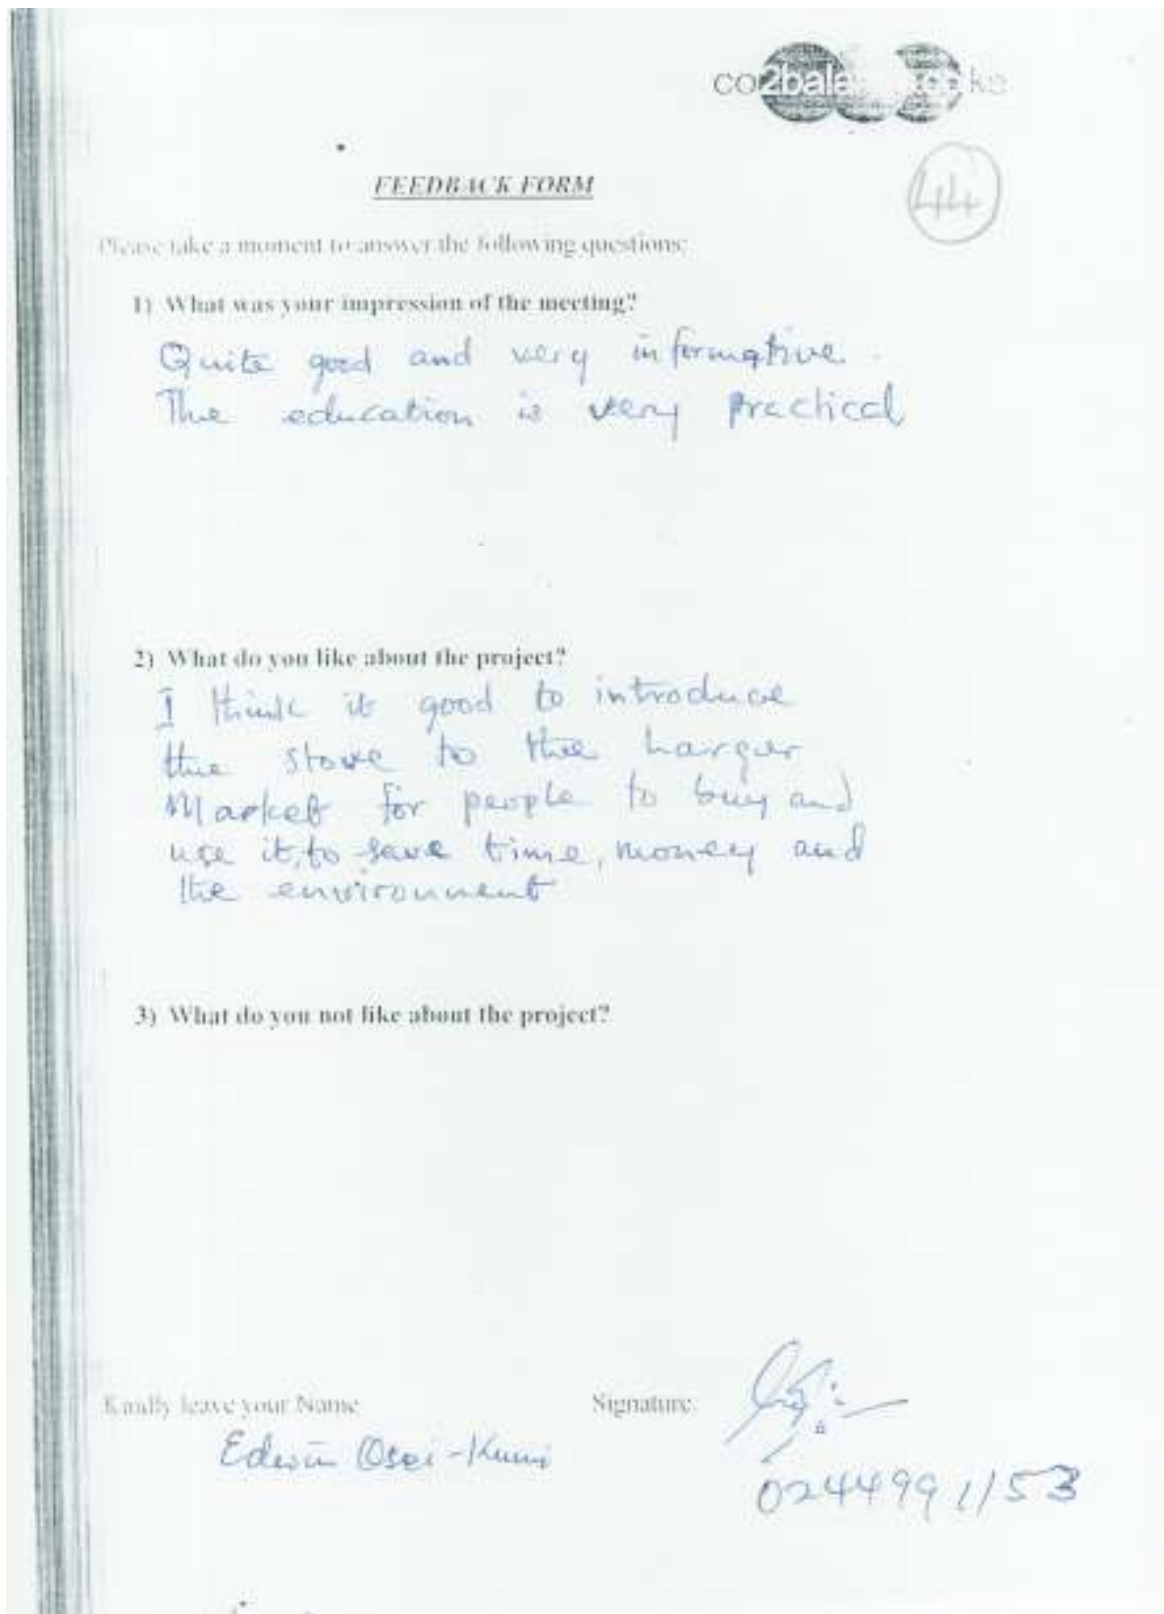 co2bala
44
FEEDBACK FORM
Please take a moment to answer the following questions:
1) What was your impression of the meeting?
Quite good and very informative.
The education is very practical
2) What do you like about the project?
I think it good to introduce
the stove to the larger
Market for people to buy and
use it, to save time, money and
the environment
3) What do you not like about the project?
Kindly leave your Name
Signature.
Edwin Osei-Kumi
0244991153